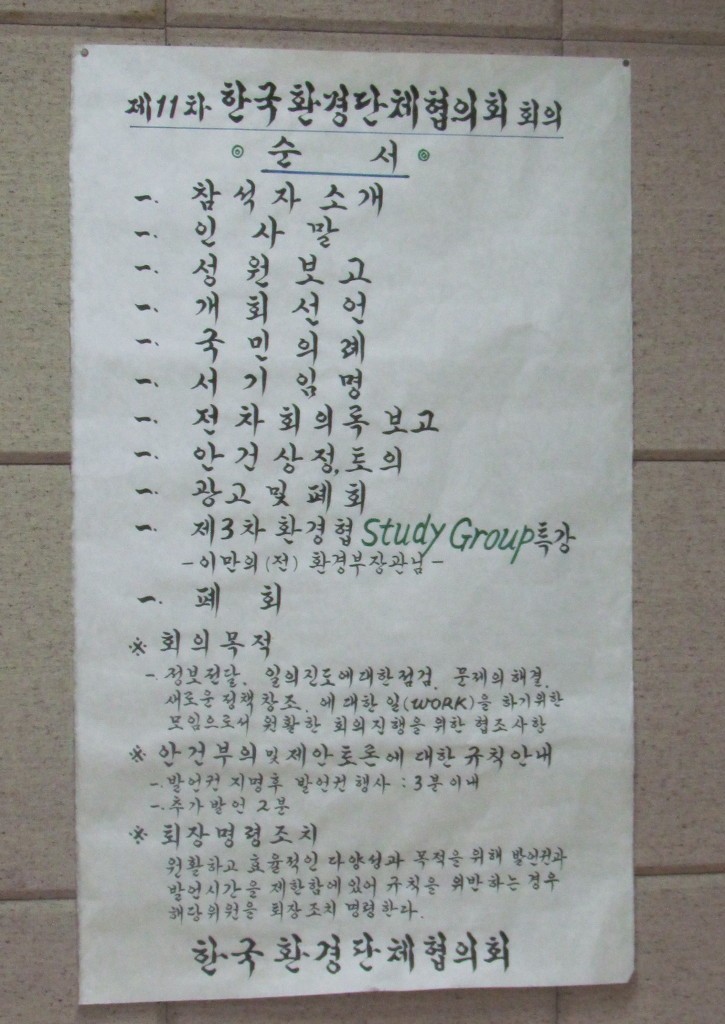 제11차 한국환경단체협의회 회의
◎ 순 서 ◎
一. 참석자 소개
一. 인 사 말
一. 성 원 보 고
一. 개 회 선 언
一. 국 민 의 례
一. 서 기 임 명
一. 전 차 회의록 보고
一. 안 건 상정, 토의
一. 광고 및 폐회
一. 제3차 환경협 Study Group 특강
- 이만의 (전) 환경부장관님 -
一. 폐 회
※ 회의 목적
一. 정보전달, 일의진도에대한점검, 문제의 해결,
새로운 정책 창조, 에 대한 일(WORK)을 하기위한
모임으로서 원활한 회의진행을 위한 협조사항
※ 안건부의 및 제안토론에 대한 규칙안내
一. 발언권 지명후 발언권 행사 : 3분이내
一. 추가 발언 2분
※ 퇴장명령조치
원활하고 효율적인 다양성과 목적을 위해 발언권과
발언시간을 제한함에있어 규칙을 위반하는 경우
해당위원을 퇴장조치 명령한다.
한국환경단체협의회